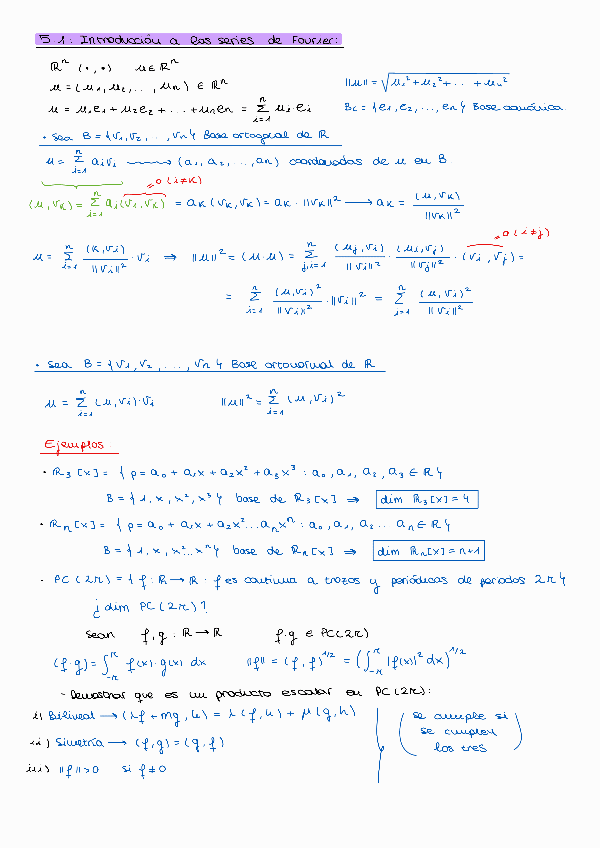 5.1: Introducción a las series de Fourier:
ℝⁿ (·,·) u∈ℝⁿ
u = (u₁, u₂, ..., uₙ) ∈ ℝⁿ ‖u‖ = √(u₁² + u₂² + ... + uₙ²)
u = u₁e₁ + u₂e₂ + ... + uₙeₙ = Σᵢ₌₁ⁿ uᵢ·eᵢ Bc = {e₁, e₂, ..., eₙ} Base canónica.
· Sea B = {v₁, v₂, ..., vₙ} Base ortogonal de ℝ
u = Σᵢ₌₁ⁿ aᵢvᵢ ⟶ (a₁, a₂, ..., aₙ) coordenadas de u en B.
0 (i≠k)
(u, vₖ) = Σᵢ₌₁ⁿ aᵢ(vᵢ, vₖ) = aₖ(vₖ, vₖ) = aₖ·‖vₖ‖² ⟶ aₖ = (u, vₖ)/‖vₖ‖²
0 (i≠j)
u = Σᵢ₌₁ⁿ (u, vᵢ)/‖vᵢ‖² · vᵢ ⇒ ‖u‖² = (u·u) = Σⱼ,ᵢ₌₁ⁿ (uⱼ, vᵢ)/‖vᵢ‖² · (uᵢ, vⱼ)/‖vⱼ‖² · (vᵢ, vⱼ) =
= Σᵢ₌₁ⁿ (u, vᵢ)²/‖vᵢ‖² · ‖vᵢ‖² = Σᵢ₌₁ⁿ (u, vᵢ)²/‖vᵢ‖²
· Sea B = {v₁, v₂, ..., vₙ} Base ortonormal de ℝ
u = Σᵢ₌₁ⁿ (u, vᵢ)·vᵢ ‖u‖² = Σᵢ₌₁ⁿ (u, vᵢ)²
Ejemplos
· ℝ₃[x] = {p = a₀ + a₁x + a₂x² + a₃x³ : a₀, a₁, a₂, a₃ ∈ ℝ}
B = {1, x, x², x³} base de ℝ₃[x] ⇒ dim ℝ₃[x] = 4
· ℝₙ[x] = {p = a₀ + a₁x + a₂x²...aₙxⁿ : a₀, a₁, a₂... aₙ ∈ ℝ}
B = {1, x, x²...xⁿ} base de ℝₙ[x] ⇒ dim ℝₙ[x] = n+1
· PC(2π) = {f: ℝ→ℝ · f es continua a trozos y periódicas de periodos 2π}
¿dim PC(2π)?
Sean f, g : ℝ→ℝ f·g ∈ PC(2π)
(f·g) = ∫₋π^π f(x)·g(x) dx ‖f‖ = (f, f)^1/2 = (∫₋π^π |f(x)|² dx)^1/2
- Demostrar que es un producto escalar en PC(2π):
i) Bilineal ⟶ (λf + mg, h) = λ(f, h) + μ(g, h)
ii) Simetría ⟶ (f, g) = (g, f)
iii) ‖f‖>0 si f≠0
(se cumple si
se cumplen
los tres)